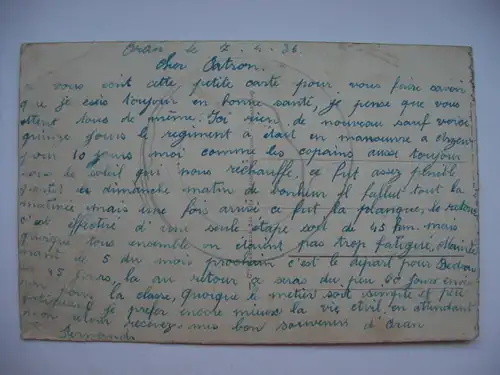 Oran le 7.4.36
Cher Patron.
Je vous écrit cette petite carte pour vous faire savoir
que je suis toujour en bonne santé, je pense que vous
étent tous de même. Ici rien de nouveau sauf voici
quinze jours le regiment a était en manœuvre a
pour 10 jours moi comme les copains aussi toujour
sous le soleil qui nous réchauffe. ce fut assez pénible
partit un dimanche matin de bonheur il fallut tout la
matinée mais une fois arrivé ce fut la planque, le retour
c'est éffectué d'une seule étape soit de 45 km. mais
quoique tous ensemble on étaient pas trop fatigué, Mainte
nant le 5 du mois prochain c'est le départ pour Bedeau
45 jours, la au retour a seras du peu 60 jours
pour la classe, Quoique le metier soit simple et
je préfer encore mieux la vie civil. en attendant
mon retour recevez mes bon souvenir d'Oran
Fernand